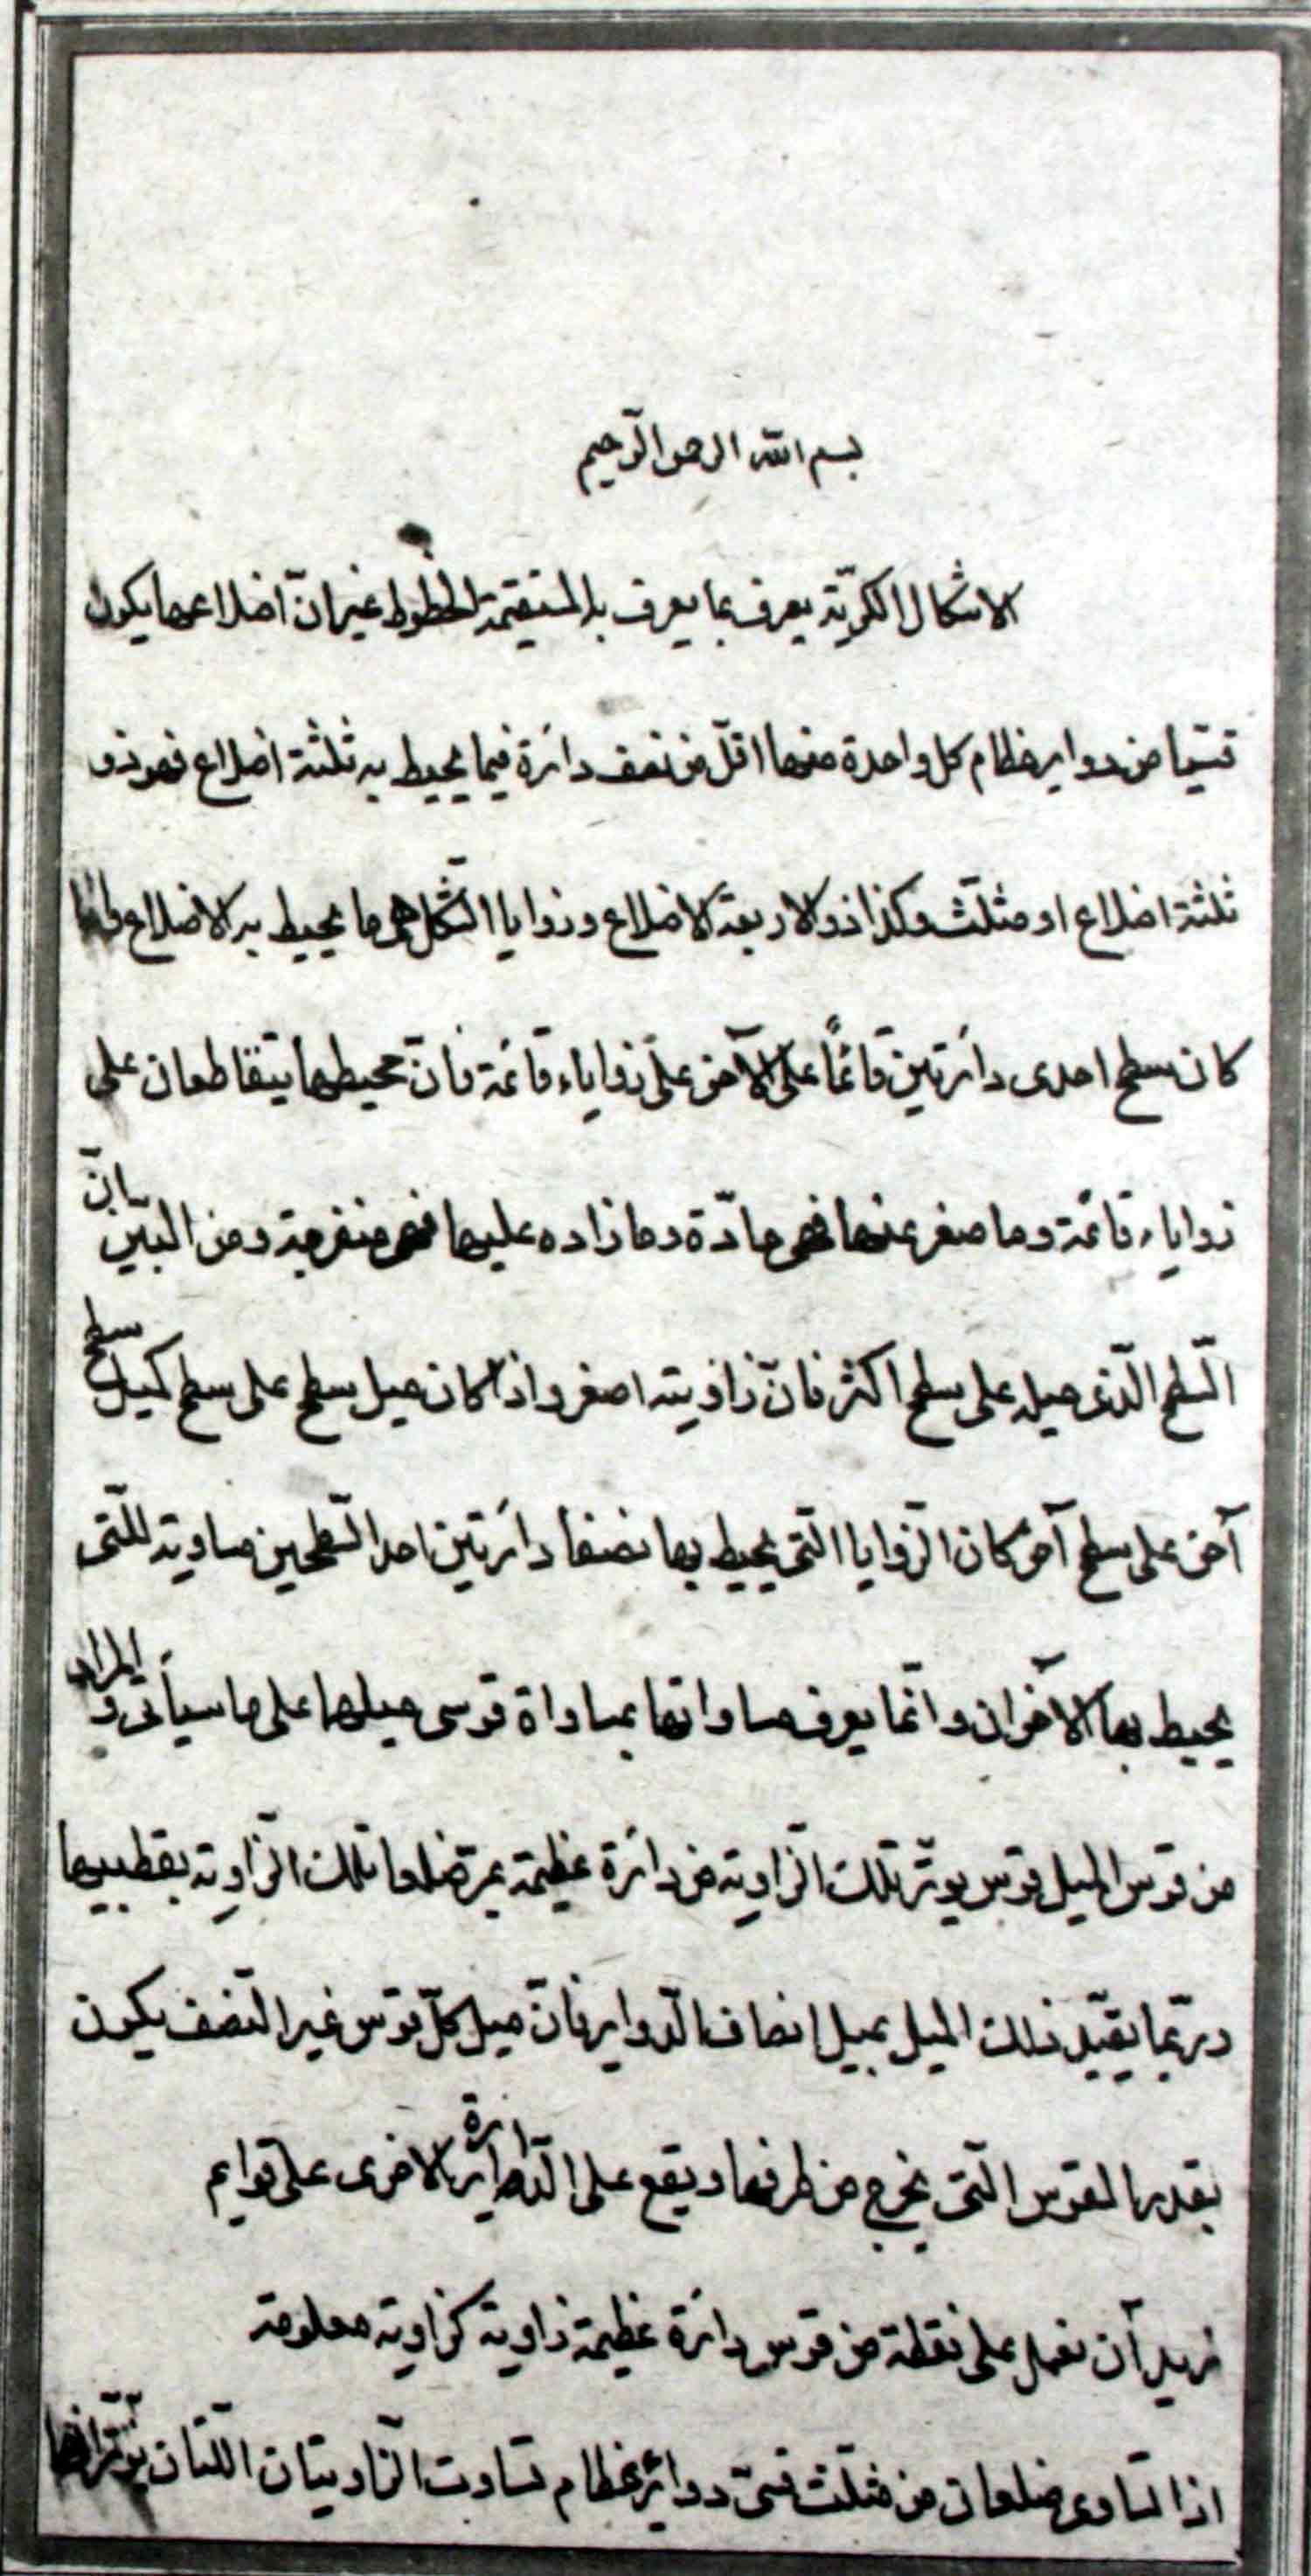 بسم الله الرحمن الرّحيم
الاشكال الكريّة يعرف بما يعرف به المستقيمة الخطوط غير انّ اضلاعها يكون
قسيّا من دواير عظام كل واحدة منها اقلّ من نصف دائرة فيما يحيط به ثلثة اضلاع فهو ذو
ثلثة اضلاع او مثلّث وكذا ذو الاربعة الاضلاع وزوايا الشّكل هى ما يحيط به الاضلاع فاذا
كان سطح احدى دائرتين قائمًا على الآخر على زواياء قائمة فانّ محيطهما يتقاطعان على
زواياء قائمة وما صغر عنها فهى حادّة وما زاده عليها فهى منفرجة ومن البيّن بانّ
السّطح الّذى ميله على سطح اكثر فانّ زاويته اصغر واذا كان ميل سطح على سطح كميل سطح
آخر على سطح آخر كان الزّوايا الّتى يحيط بها نصفا دائرتين احد السّطحين مساوية للّتى
يحيط بها الآخران وانّما يعرف مساواتها بمساواة قوسى ميلهما على ما سيأتى و المراد
من قوس الميل قوس يوتّر تلك الزّاوية من دائرة عظيمة يمرّ ضلعا تلك الزّاوية بقطبيها
وربّما يقيّد ذلك الميل بميل انصاف الدّواير فانّ ميل كلّ قوس غير النّصف يكون
بقدر القوس الّتى يخرج من طرفها ويقع على الدّايرة الاخرى على قوايم
نريد آن نعمل على نقطة من قوس دائرة عظيمة زاوية كزاوية معلومة
اذا تساوى ضلعان من مثلّث قسىّ دوائر عظام تساوت الزّاويتان اللّتان يوتّرانها